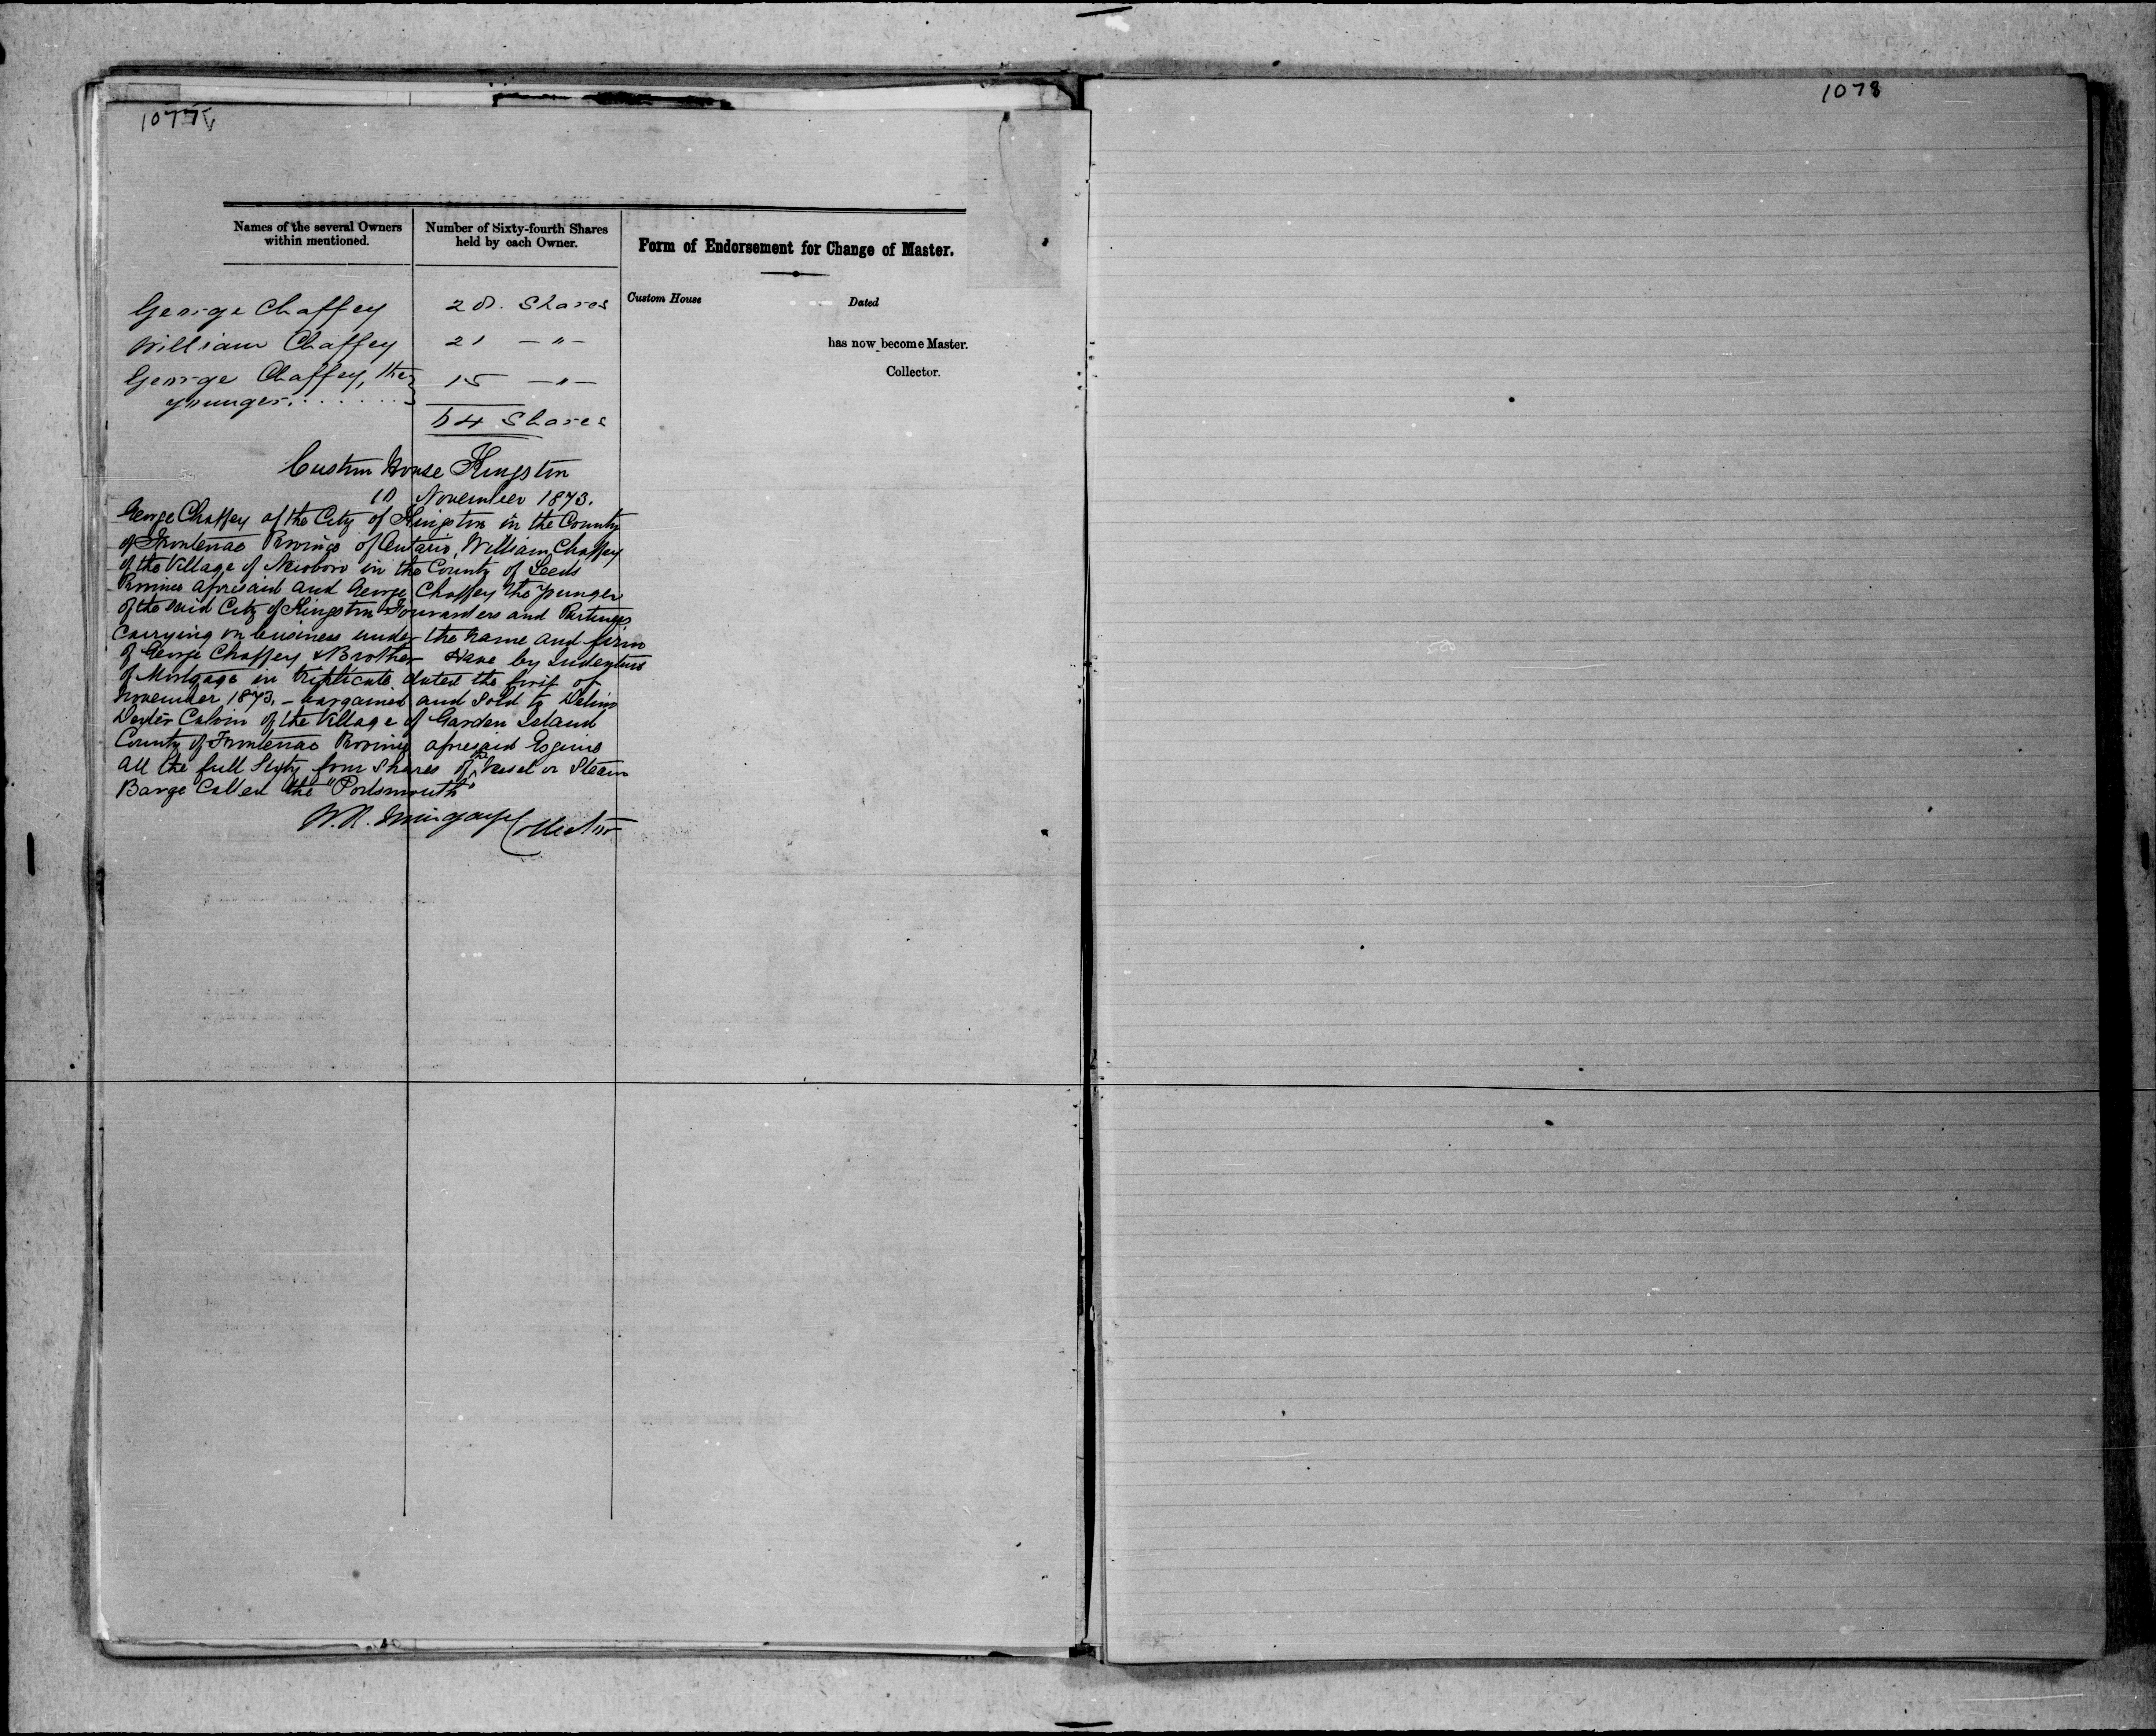 1077
1078
Names of the several Owners within mentioned.
Number of Sixty-fourth Shares held by each Owner.
Form of Endorsement for Change of Master.
George Chaffey 28. Shares
William Chaffey 21 — " —
George Chaffey, the 15 — " —
younger.......
64 Shares
Custom House Dated
has now become Master.
Collector.
Custom House Kingston
10 November 1873.
George Chaffey of the City of Kingston in the County
of Frontenac Province of Ontario, William Chaffey
of the Village of Newboro in the County of Leeds
Province aforesaid and George Chaffey the younger
of the said City of Kingston Forwarders and Partners
carrying on business under the name and firm
of George Chaffey & Brother Have by Indenture
of Mortgage in triplicate dated the first of
November 1873, – bargained and Sold to Delino
Dexter Calvin of the Village of Garden Island
County of Frontenac Province aforesaid Esquire
all the full Sixty four Shares of the Vessel or Steam
Barge Called the "Portsmouth"
W. R. Mingaye Collector